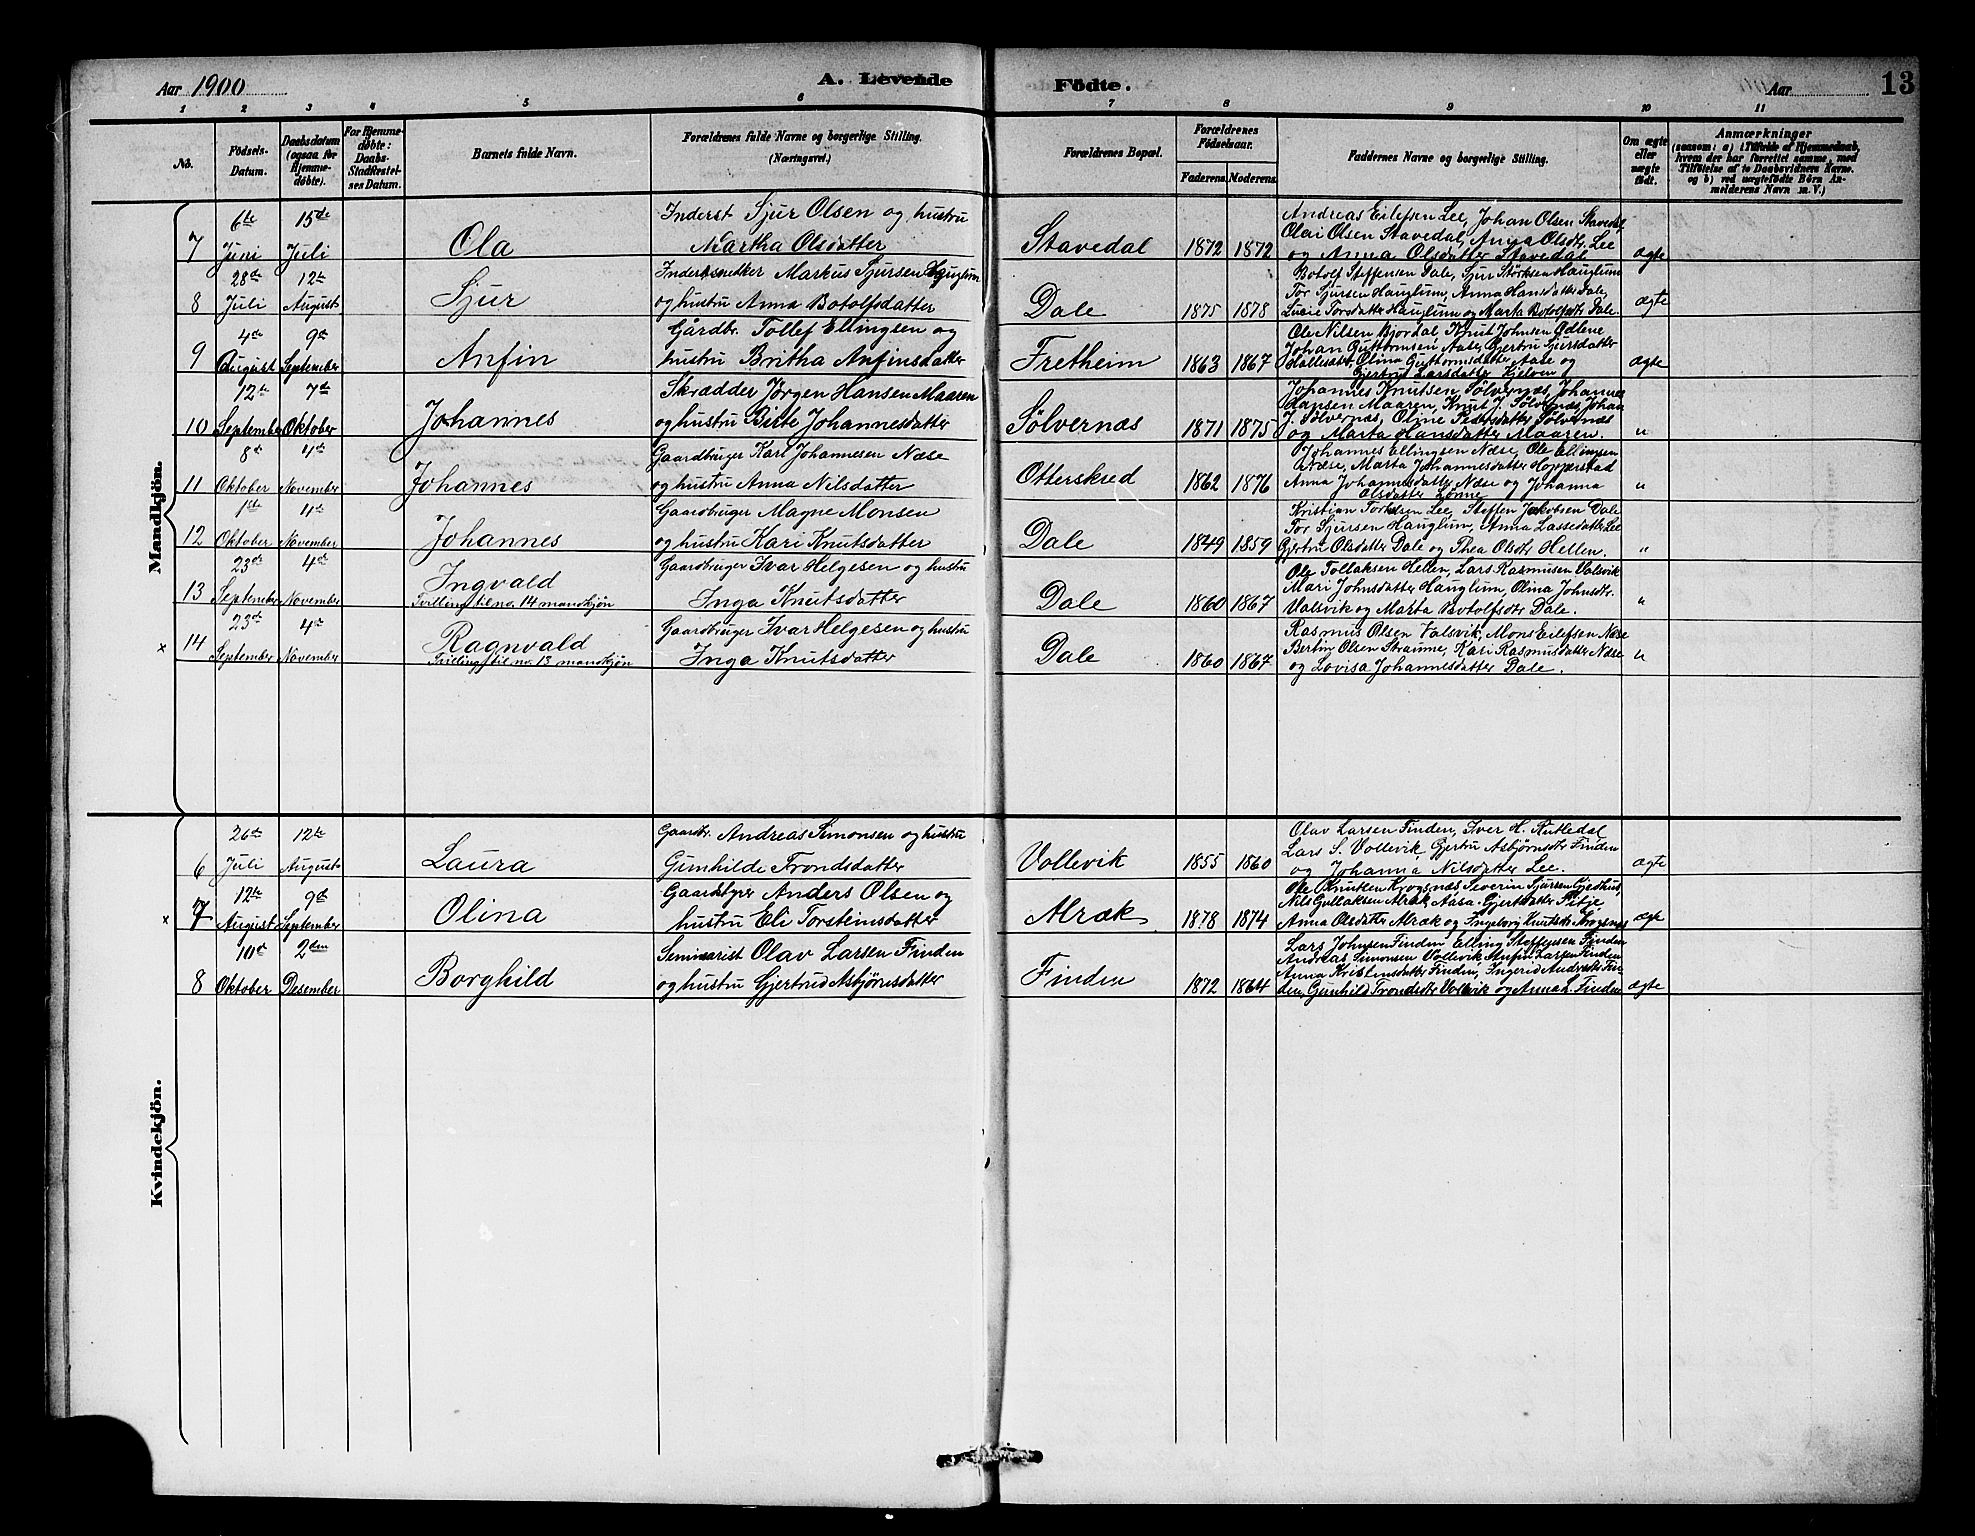 Aar 1900
A. Levende Födte.
Aar
13
1 2 3 4 5 6 7 8 9 10 11
No.
Födsels-Datum.
Daabsdatum (ogsaa for Hjemmedøbte).
For Hjemmedøbte: Daabs-Stadfæstelses Datum.
Barnets fulde Navn.
Forældrenes fulde Navne og borgerlige Stilling. (Næringsvei.)
Forældrenes Bopæl.
Forældrenes Födselsaar.
Faderens Moderens
Faddernes Navne og borgerlige Stilling.
Om ægte eller uægte födt.
Anmærkninger
(saasom: a) i Tilfælde af Hjemmedaab, hvem der har forrettet samme, med Tilföielse af to Daabsvidners Navne, og b) ved uægtefödte Börn Anmelderens Navn m. V.)
Mandkjön.
7 6te Juni 15de Juli Ola
Inderst Sjur Olsen og hustru
Martha Olsdatter
Stavedal 1872 1872
Andreas Eilefsen Lee, Johan Olsen Stavedal
Olai Olsen Stavedal, Anna Olsdtr. Lee
og Anna Olsdatter Stavedal
ægte
8 28de Juli 12te August Sjur
Markus Sjursen Hauglum
og hustru Anna Botolfsdatter
Dale 1875 1878
Botolf Steffensen Dale, Sjur Hauglum
Tor Sjursen Hauglum, Anna Hansdatter Dale,
Lucie Torsdatter Hauglum og Marta Botolfsdtr Dale.
ægte
9 4de August 9de September Anfin
Gårdbr. Tollef Ellingsen og
hustru Britha Anfinsdatter
Fretheim 1863 1867
Ole Nilsen Bjordal, Knut Johnsen Ødlene
Johan Guttormsen Aase, Gjertru Sjursdatter
Olina Guthormsdatter Aase og
Gjertrud Larsdatter
ægte
10 12te September 7de Oktober Johannes
Skrædder Jørgen Hansen Maaren
og hustru Birte Johannesdatter
Sølvernæs 1871 1875
Johannes Knutsen Sølvernæs, Johannes
Hansen Maaren, Knut J. Sølvernæs, Johan
J. Sølvernæs, Oline Pedersdatter Sølvernæs
og Marta Hansdatter Maaren.
"
11 8de Oktober 4de November Johannes
Gaardbruger Karl Johannesen Næse
og hustru Anna Nilsdatter
Otterskred 1862 1876
Johannes Ellingsen Næse, Ole Ellingsen
Næse, Marta Johannesdatter Hopperstad
Anna Johannesdatter Næse og Johanna
Olsdatter Lønne
"
12 1ste Oktober 4de November Johannes
Gaardbruger Magne Monsen
og hustru Kari Knutsdatter
Dale 1849 1859
Kristian Lee, Steffen Jakobsen Dale
Tor Sjursen Hauglum, Anna Lassedatter Lee
Gjertru Olsdatter Dale og Thea Olsdtr Hellen.
"
13 23de September 4de November Ingvald
Tvilling til no. 14 mandkjön
Gaardbruger Ivar Helgesen og hustru
Inga Knutsdatter
Dale 1860 1867
Ole Tollaksen Hellen, Lars Rasmusen Valsvik
Mari Johnsdatter Hauglum, Olina Johnsdtr.
Valsvik og Marta Botolfsdtr Dale.
"
x 14 23de September 4de November Ragnvald
Tvilling til no. 13 mandkjön
Gaardbruger Ivar Helgesen og hustru
Inga Knutsdatter
Dale 1860 1867
Rasmus Olsen Valsvik, Mons Eilefsen Næse
Bertin Olsen Straume, Kari Rasmusdatter Næse
og Lovisa Johannesdatter Dale.
"
Kvindekjön.
6 26de Juli 12te August Laura
Gaardbr. Andreas Simonsen og hustru
Gunhilde Trondsdatter
Vollevik 1855 1860
Olav Larsen Finden, Iver H. Rutledal
Lars S. Vollevik, Gjertru Asbjørnsdtr Finden
og Johanna Nilsdatter Lee.
ægte
x 7 12te August 9de September Olina
Anders Olsen og
hustru Eli Torsteinsdatter
Alræk 1878 1874
Ole Knutsen Krogsnæs Severin Sjursen
Nils Gullaksen Alræk Aasa Gjertsdatter
Anna Olsdatter Alræk og Ingeborg Knutsdtr. Krogsnæs
ægte
8 10de Oktober 2den Desember Borghild
Seminarist Olav Larsen Finden
og hustru Gjertrud Asbjørnsdatter
Finden 1872 1864
Lars Johnsen Finden Elling Steffensen Finden
Andreas Simonsen Vollevik Anfin Larsen Finden
Anna Kristensdatter Finden, Ingerid Andersdtr Fin-
den, Gunhild Trondsdtr Vollevik og Anna L. Finden
ægte